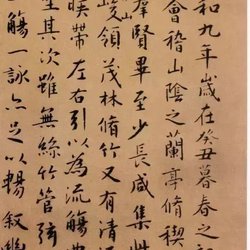 和九年歲在癸丑暮春之
會稽山陰之蘭亭脩禊
羣賢畢至少長咸集此
山
峻領茂林脩竹又有清
暎帶左右引以為流觴曲
坐其次雖無絲竹管弦
觴一詠亦足以暢敘幽